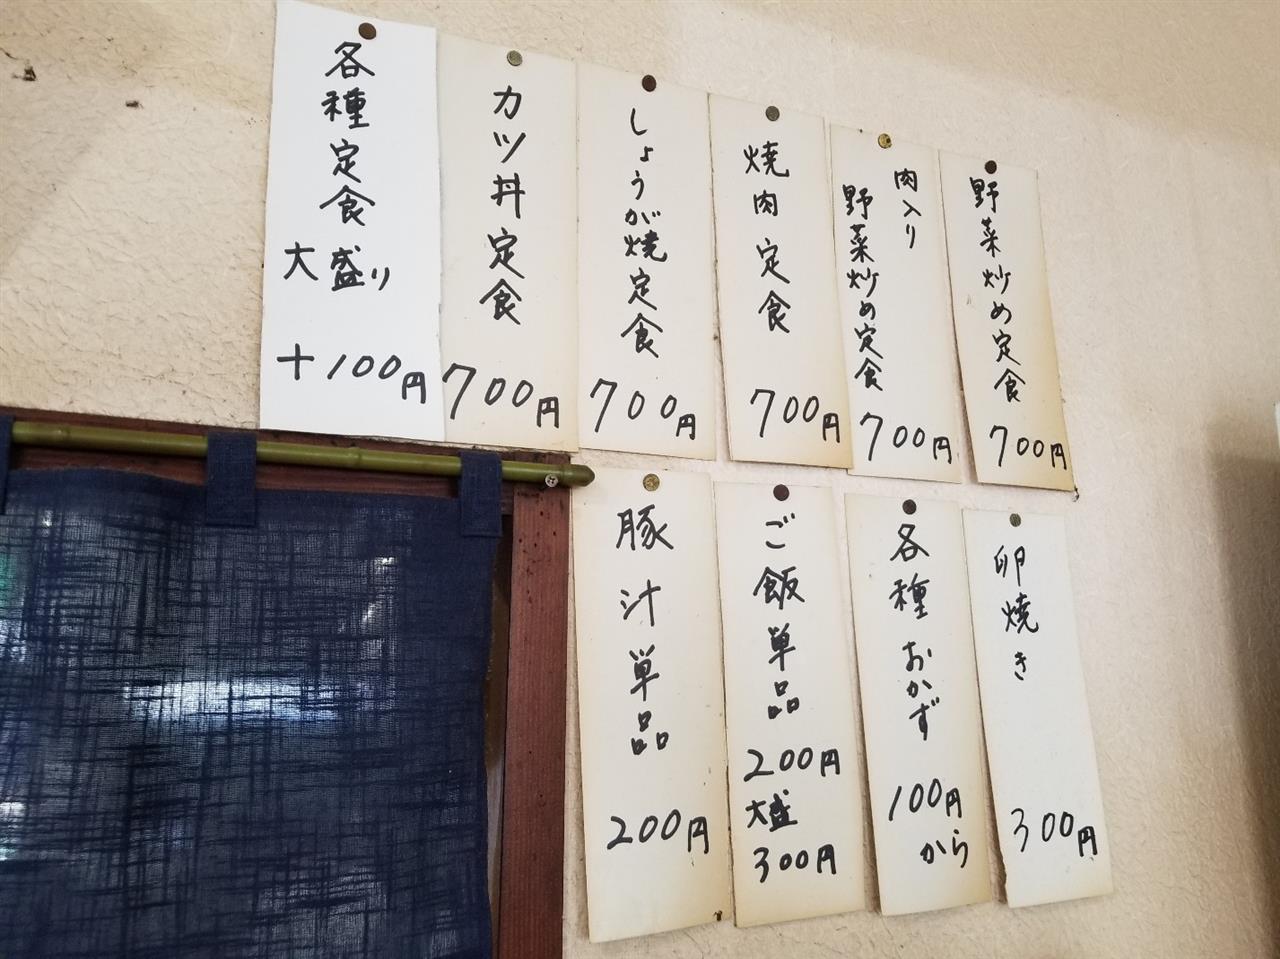 野菜炒め定食
700円
肉入り
野菜炒め定食
700円
焼肉定食
700円
しょうが焼定食
700円
カツ丼定食
700円
各種定食
大盛り
+100円
卵焼き
300円
各種おかず
100円
から
ご飯単品
200円
大盛
300円
豚汁単品
200円